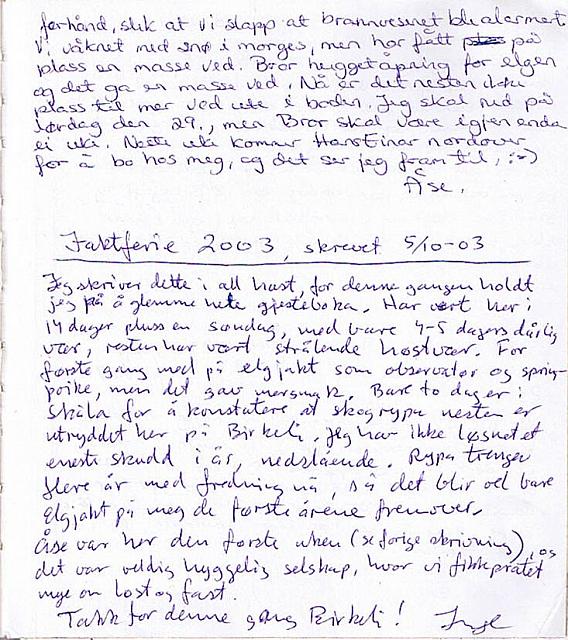 forhånd, slik at vi slapp at brannvesenet ble alarmert
Vi våknet med snø i morges, men har fått på
plass en masse ved. Bror hugget åpning for elgen
og det ga en masse ved. Nå er det nesten ikke
plass til mer ved ute i boden. Jeg skal ned på
lørdag den 29., men Bror skal være igjen enda
ei uke. Neste uke kommer Hans Einar nordover
for å bo hos meg, og det ser jeg fram til, :-)
Åse.
Jaktferie 2003, skrevet 5/10-03
Jeg skriver dette i all hast, for denne gangen holdt
jeg på å glemme hele gjesteboka. Har vært her i
14 dager pluss en søndag, med bare 4-5 dagers dårlig
vær, resten har vært strålende høstvær. For
første gang med på elgjakt som observatør og spring-
poike, men det gav mersmak. Bare to dager i
Skåla for å konstatere at skogrypa nesten er
utryddet her på Birkeli. Jeg har ikke løsnet et
eneste skudd i år, nedslående. Rypa trenger
flere år med fredning nå, så det blir vel bare
Elgjakt på meg de første årene fremover.
Åse var her den første uken (se forige skrivning), og
det var veldig hyggelig selskap, hvor vi fikk pratet
mye om løst og fast.
Takk for denne gang Birkeli! Inge